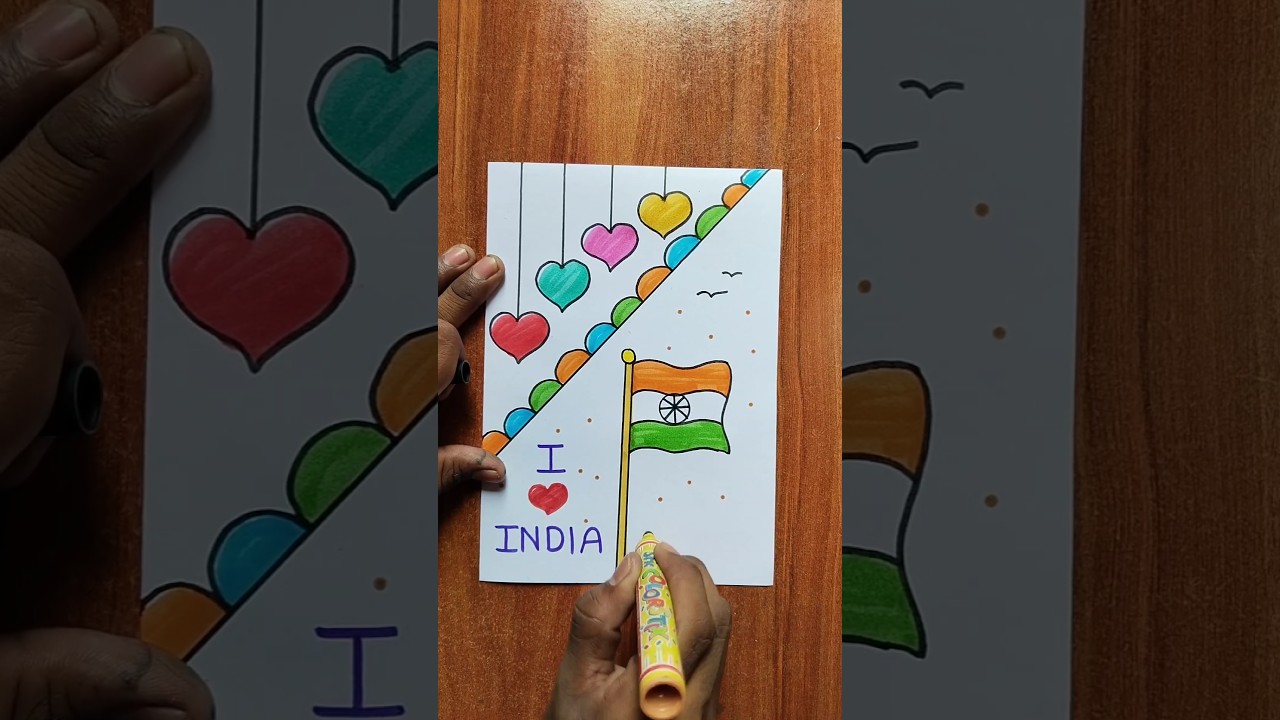 I
INDIA